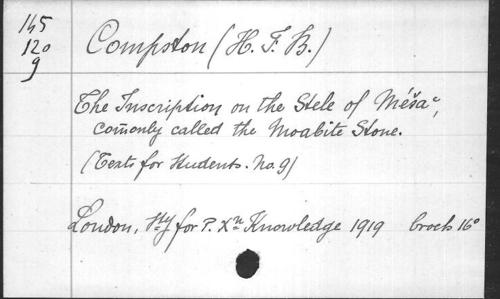 145
120
9
Compston (H. F. B.)
The Inscription on the Stele of Méšaᶜ,
com̄only called the Moabite Stone.
(Texts for Students. No. 9)
London, Sty for P. Xn Knowledge 1919 broch 16°